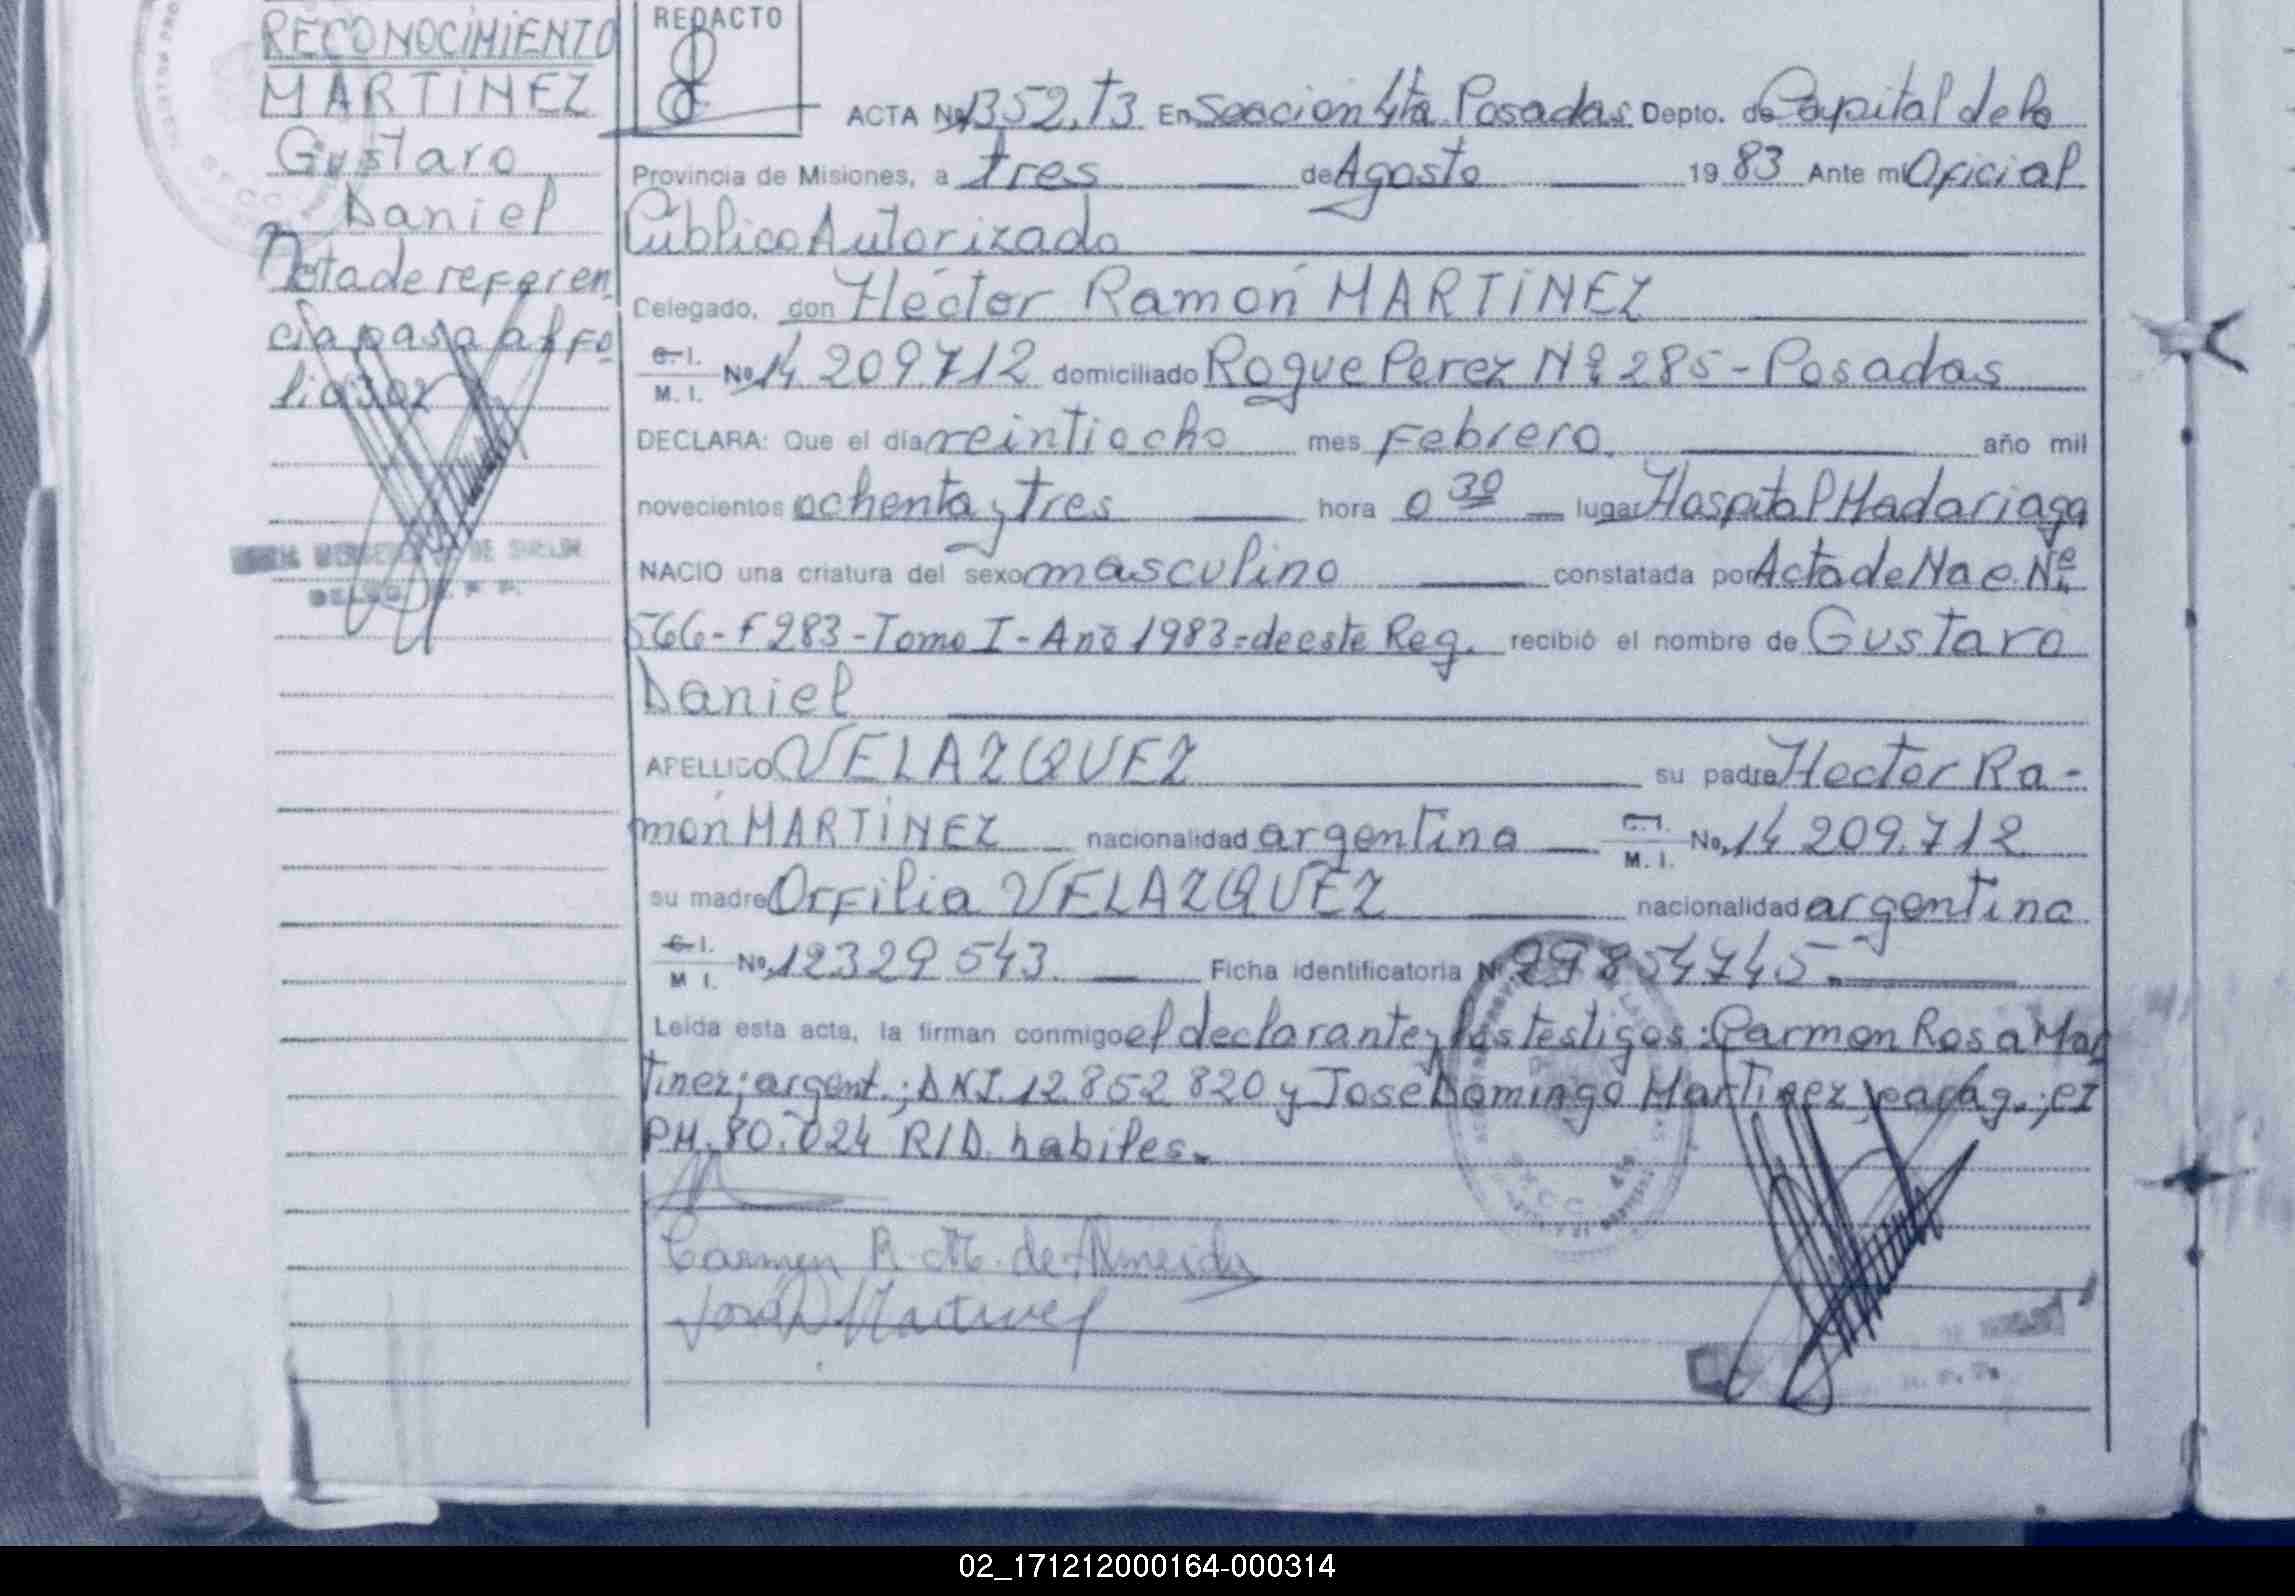 RECONOCIMIENTO
MARTINEZ
Gustavo
Daniel
Nota de referen
cia pasa al Fo
lio 302
REDACTO
ACTA No 1352. T3 En Seccion 4ta. Posadas Depto. de Capital de la
Provincia de Misiones, a tres de Agosto 1983 Ante mi Oficial
Público Autorizado
Delegado, don Héctor Ramón MARTINEZ
C. I.
M. I. No 14 209.712 domiciliado Roque Perez Nº 285 - Posadas
DECLARA: Que el día veintiocho mes Febrero. año mil
novecientos ochenta y tres hora 0 30 lugar Hospital Madariaga
NACIO una criatura del sexo masculino constatada por Acta de Nac. Nº
566 - F 283 - Tomo I - Año 1983 = de este Reg. recibió el nombre de Gustavo
Daniel
APELLIDO VELAZQUEZ su padre Hector Ra-
món MARTINEZ nacionalidad argentina C. I.
M. I. No. 14 209.712
su madre Orfilia VELAZQUEZ nacionalidad argentina
C. I.
M I. No. 12329 543. Ficha identificatoria Nº 29854745.
Leida esta acta, la firman conmigo el declarante y los testigos: Carmen Rosa Mar
tinez; argent.; DNI. 12.852 820 y Jose Domingo Martinez parag.; CI
PM. 80.024 R/D. habiles.
Carmen R. M. de Almeida
José D Martinez
02_171212000164-000314